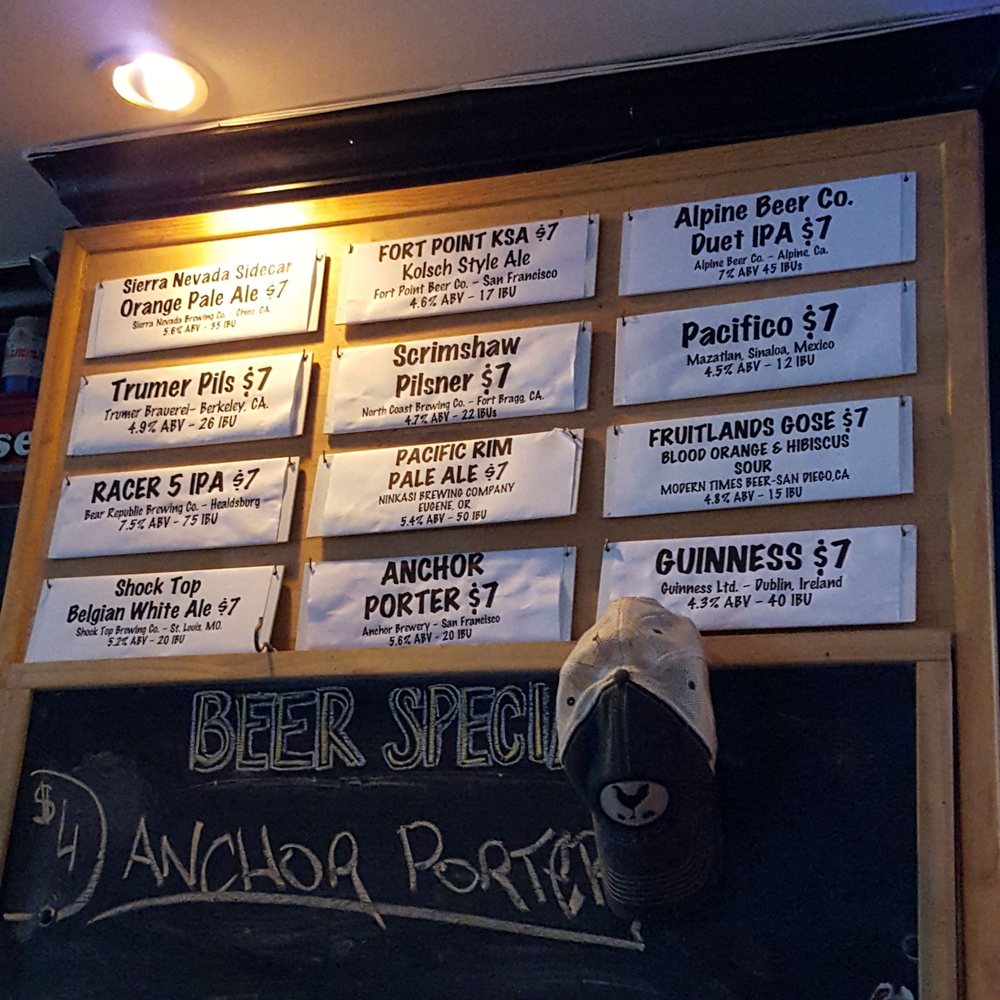 Sierra Nevada Sidecar
Orange Pale Ale $7
Sierra Nevada Brewing Co. - Chico, CA.
5.6% ABV - 35 IBU
FORT POINT KSA $7
Kolsch Style Ale
Fort Point Beer Co. - San Francisco
4.6% ABV - 17 IBU
Alpine Beer Co.
Duet IPA $7
Alpine Beer Co. - Alpine, Ca.
7% ABV 45 IBUs
Trumer Pils $7
Trumer Brauerei- Berkeley, CA.
4.9% ABV - 26 IBU
Scrimshaw
Pilsner $7
North Coast Brewing Co. - Fort Bragg, CA.
4.7% ABV - 22 IBUs
Pacifico $7
Mazatlan, Sinaloa, Mexico
4.5% ABV - 12 IBU
RACER 5 IPA $7
Bear Republic Brewing Co. - Healdsburg
7.5% ABV - 75 IBU
PACIFIC RIM
PALE ALE $7
NINKASI BREWING COMPANY
EUGENE, OR
5.4% ABV - 50 IBU
FRUITLANDS GOSE $7
BLOOD ORANGE & HIBISCUS
SOUR
MODERN TIMES BEER-SAN DIEGO,CA
4.8% ABV - 15 IBU
Shock Top
Belgian White Ale $7
Shock Top Brewing Co. - St. Louis, MO.
5.2% ABV - 20 IBU
ANCHOR
PORTER $7
Anchor Brewery - San Francisco
5.6% ABV - 20 IBU
GUINNESS $7
Guinness Ltd. - Dublin, Ireland
4.3% ABV - 40 IBU
BEER SPECI
$4 ANCHOR PORTER